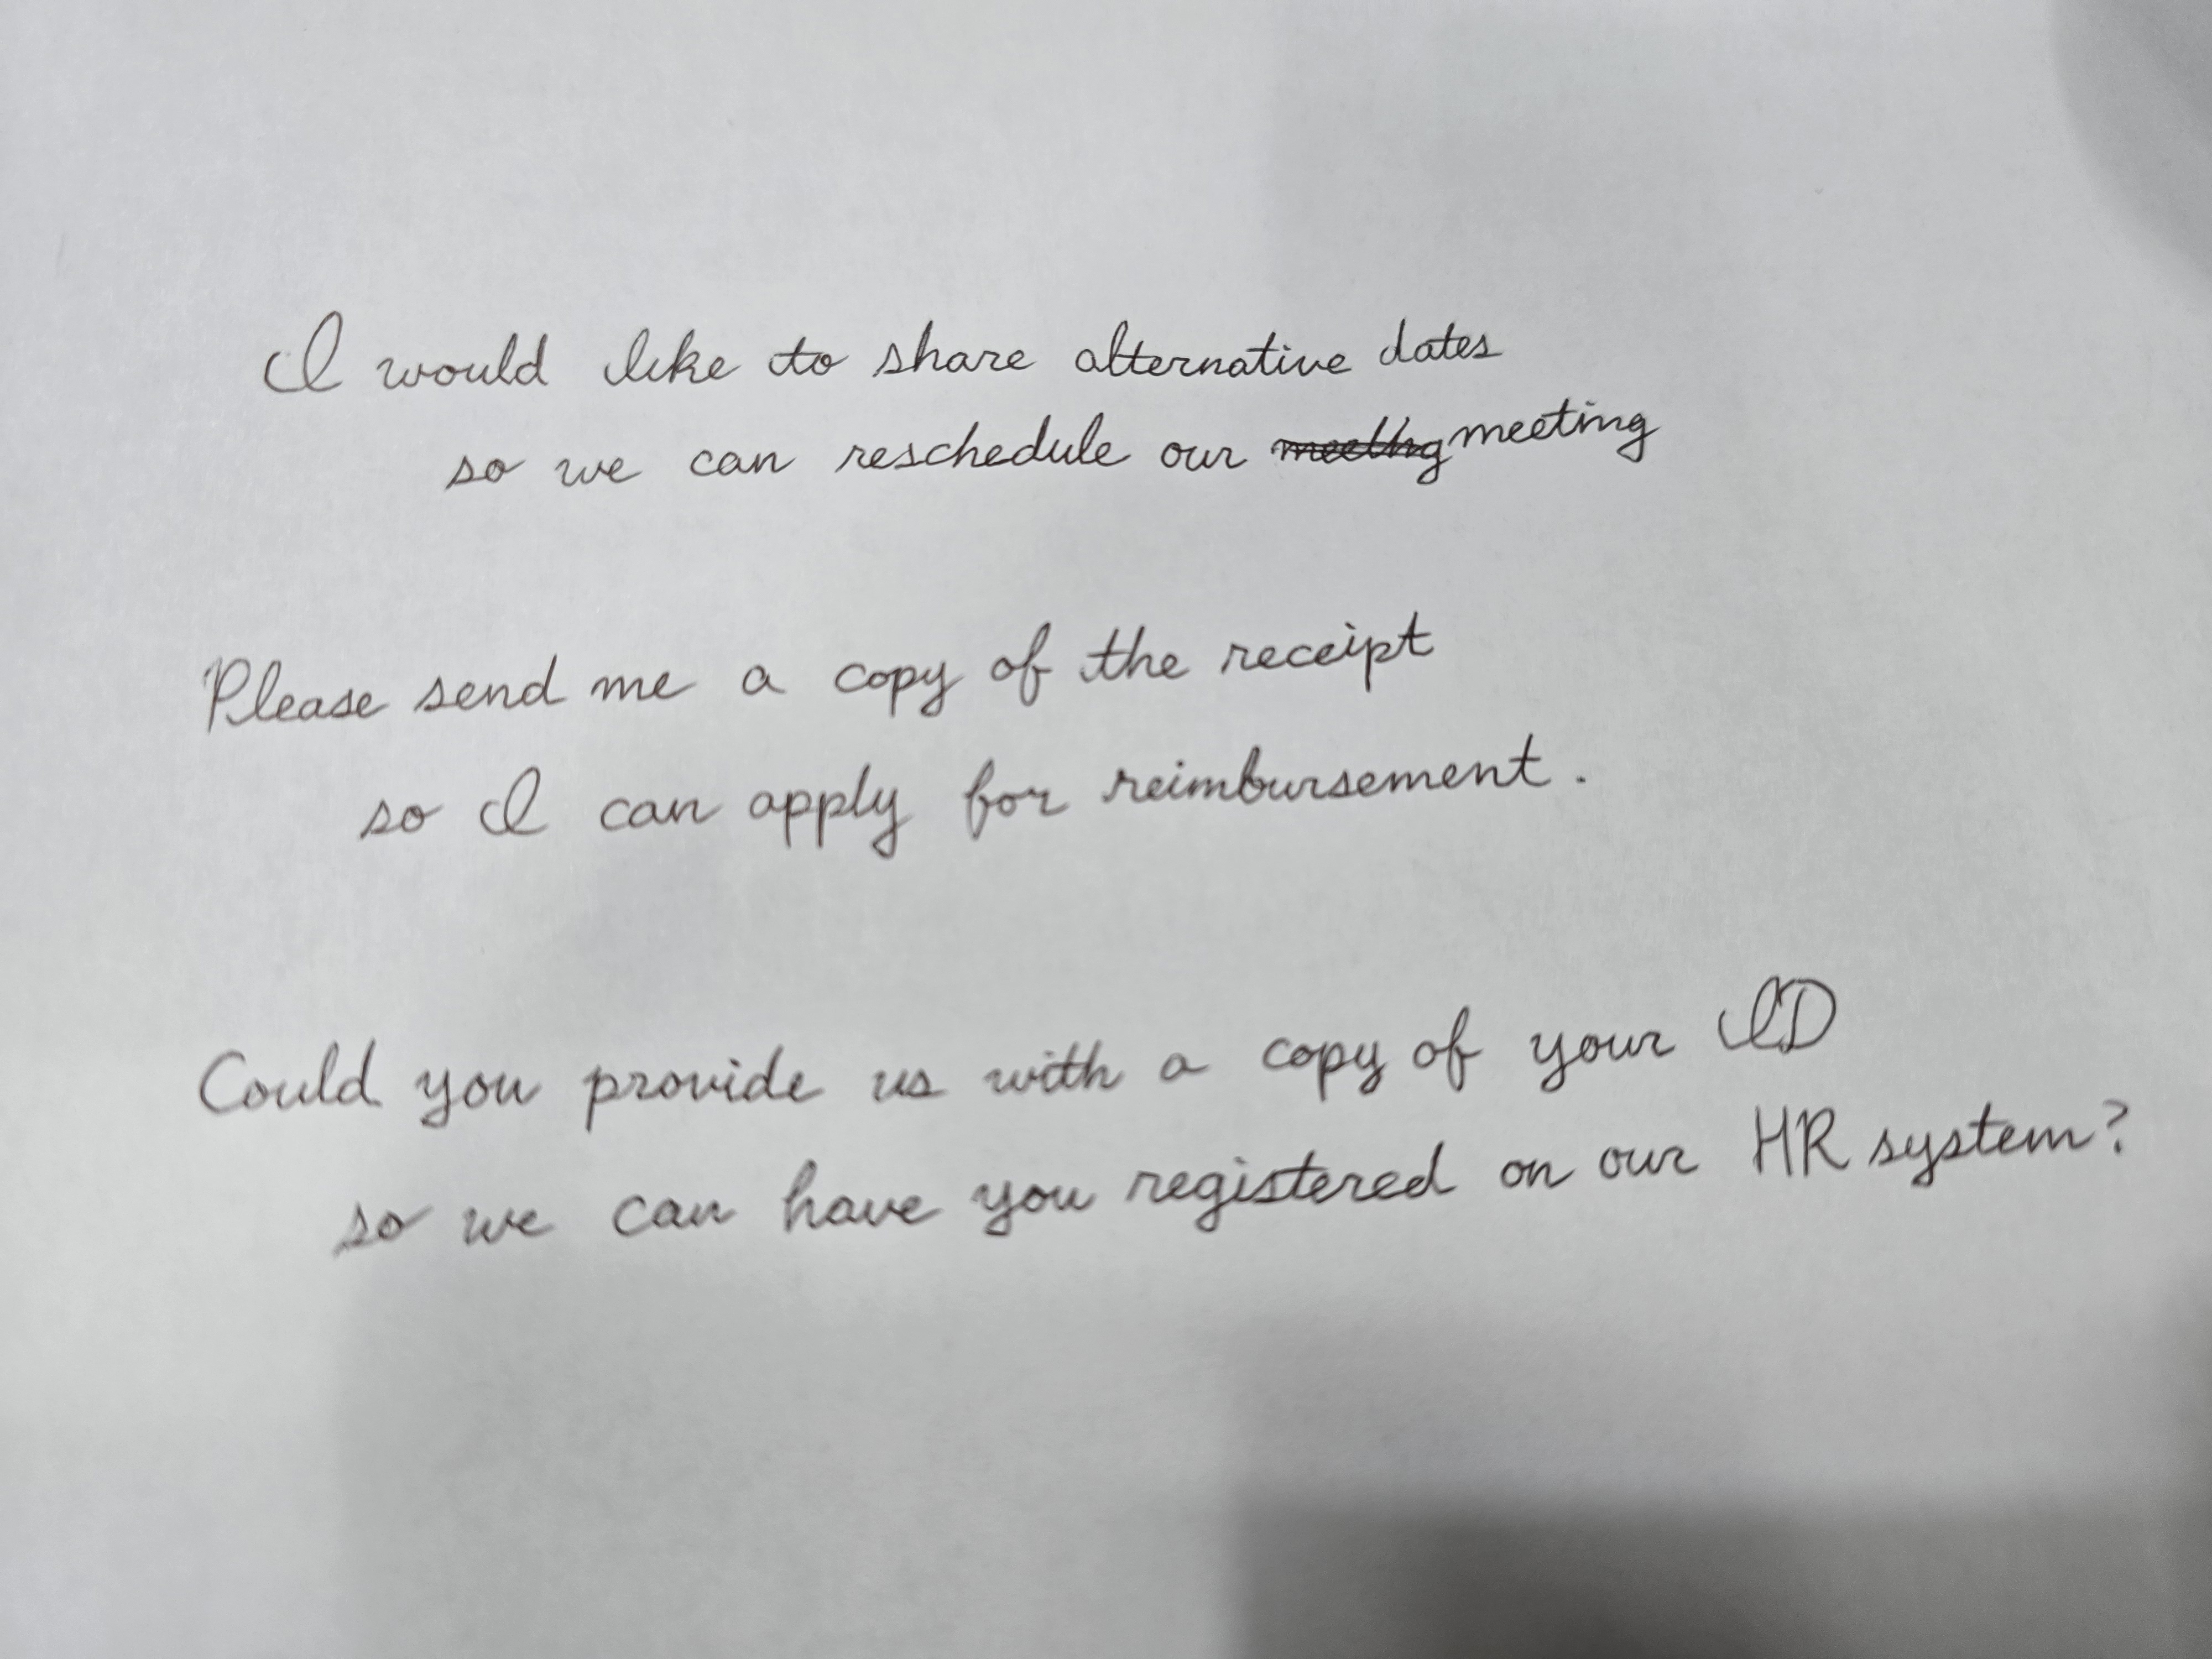 I would like to share alternative dates
so we can reschedule our meeting
Please send me a copy of the receipt
so I can apply for reimbursement.
Could you provide us with a copy of your ID
so we can have you registered on our HR system?